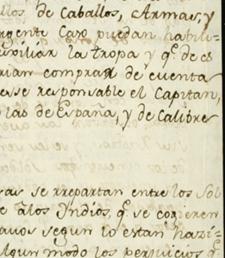 llos de Caballos, Armas, y
urgente Caso puedan habili-
uxiliár la tropa y q.e de es
rian comprar de cuenta
erse responsable el Capitan,
las de España, y de Calibre
se rrepartan entre los Sol
e alos Yndios, q.e se cogieren
segun lo estan hazi-
lgun modo los perjuicios q.e